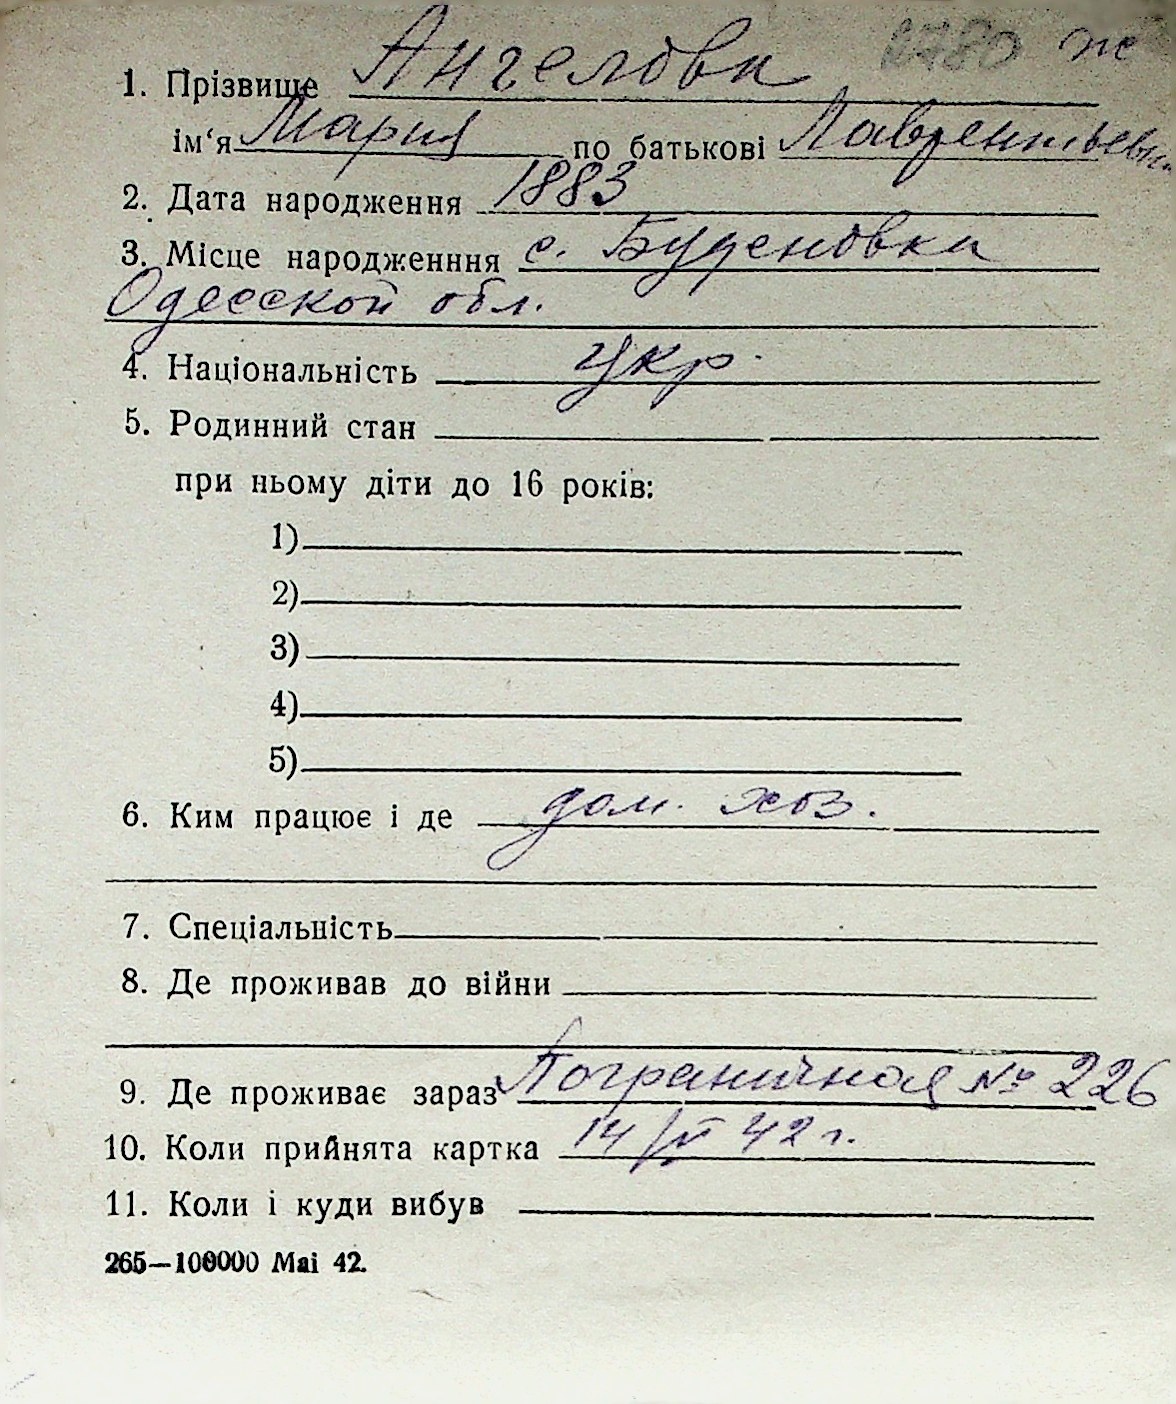 2780 ж
1. Прізвище Ангелова
ім‘я Мария по батькові Лаврентьевна
2. Дата народження 1883
3. Місце народженння с. Буденовка
Одесской обл.
4. Національність укр.
5. Родинний стан
при ньому діти до 16 років:
1)
2)
3)
4)
5)
6. Ким працює і де дом. хоз.
7. Спеціальність
8. Де проживав до війни
9. Де проживає зараз Пограничная № 226
10. Коли прийнята картка 14/ 42 г.
11. Коли і куди вибув
265—100000 Mai 42.